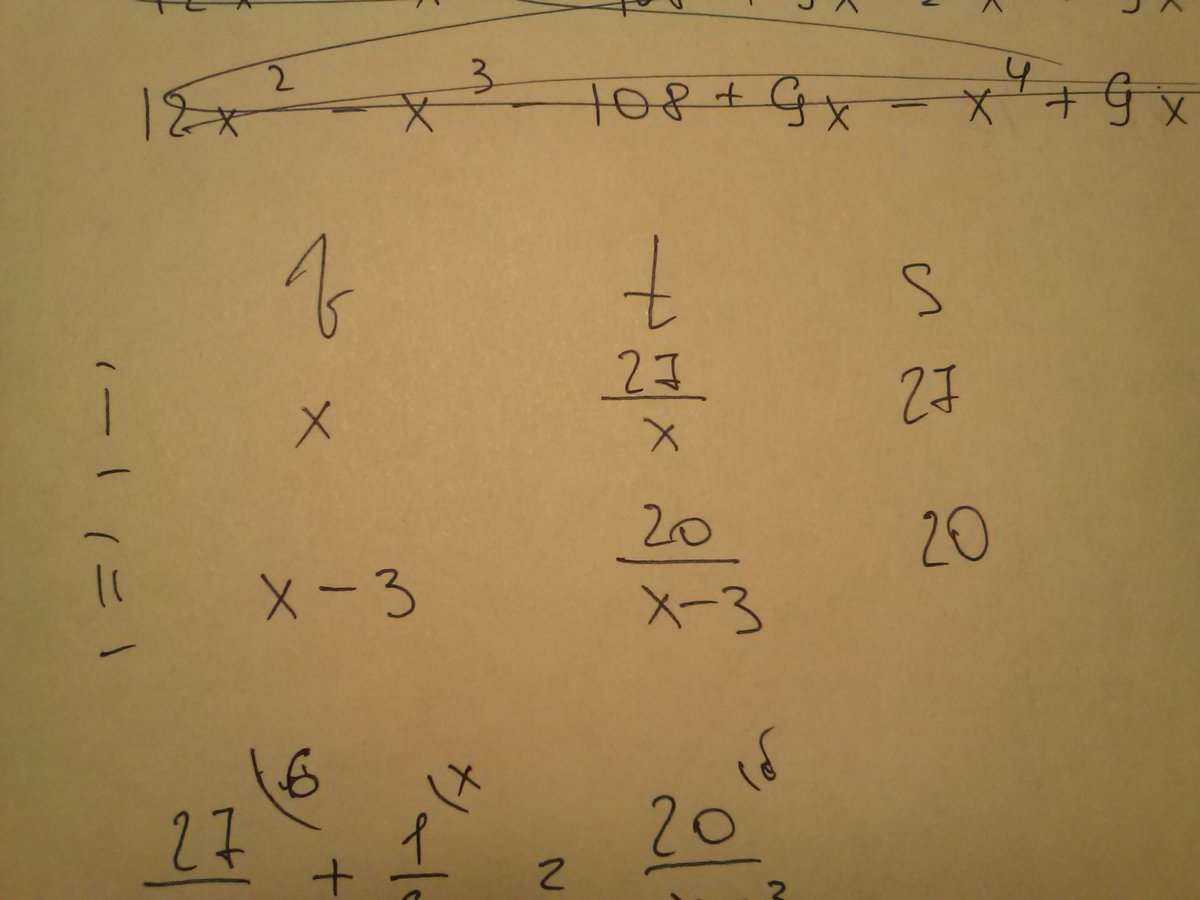 12x² - x³ - 108 + 9x - x⁴ + 9x
v t s
I x 27/x 27
II x-3 20/(x-3) 20
27 (6 + 1 (x = 20 (6